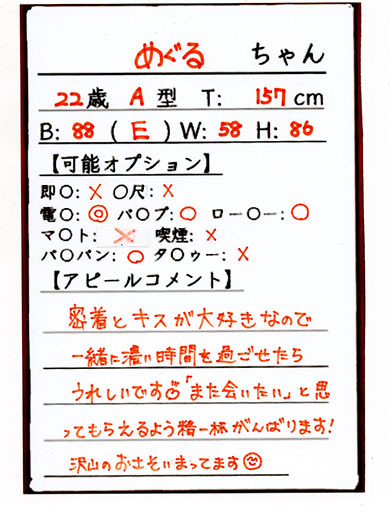 めぐる ちゃん
22歳 A 型 T: 157cm
B: 88 ( E ) W: 58 H: 86
【可能オプション】
即〇: × 〇尺: ×
電〇: ◎ バ〇ブ: 〇 ロー〇ー: 〇
マ〇ト: × 喫煙: ×
パ〇パン: 〇 タ〇ゥー: ×
【アピールコメント】
密着とキスが大好きなので
一緒に濃い時間を過ごせたら
うれしいです「また会いたい」と思
ってもらえるよう精一杯がんばります!
沢山のおさそいまってます